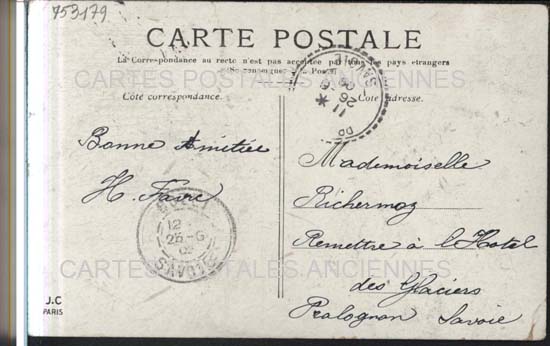 753179
CARTE POSTALE
La Correspondance au recto n'est pas acceptée par tous les pays étrangers
Côté correspondance.
Côté adresse.
CARTES POSTALES ANCIENNES
Bonne Amitiée
H. Favre
Mademoiselle
Richermoz
Remettre à l'Hotel
des Glaciers
Pralognan Savoie
SAVOIE
11
26
12
25-6
CARTES POSTALES ANCIENNES
J.C
PARIS